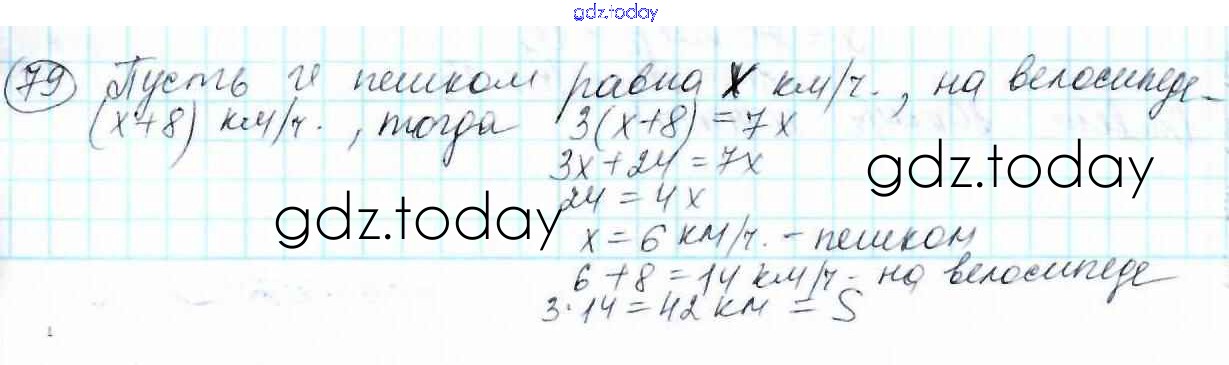 gdz.today
79 Пусть v пешком равна x км/ч., на велосипеде -
(x+8) км/ч., тогда 3(x+8) = 7x
3x + 24 = 7x
gdz.today
24 = 4x
gdz.today
x = 6 км/ч. - пешком
6 + 8 = 14 км/ч - на велосипеде
3·14 = 42 км = S